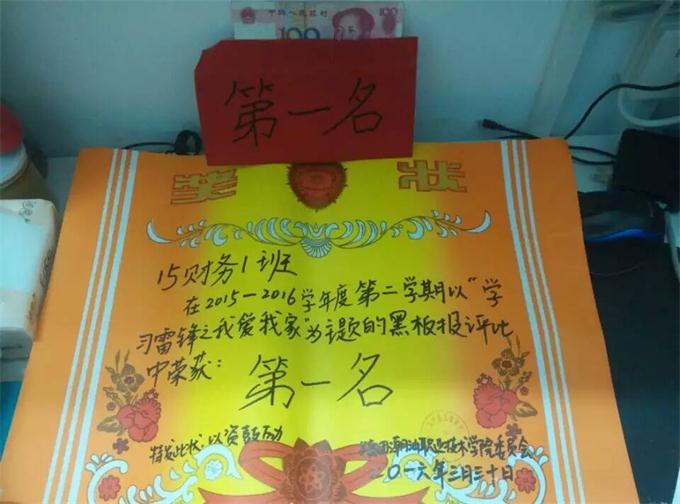 中国人民银行
100
100
第一名
奖状
15财务1班
在2015—2016学年度第二学期以"学
习雷锋之我爱我家"为主题的黑板报评比
中荣获：
第一名
特发此状，以资鼓励
职业技术学院委员会
二〇一六年三月三十日